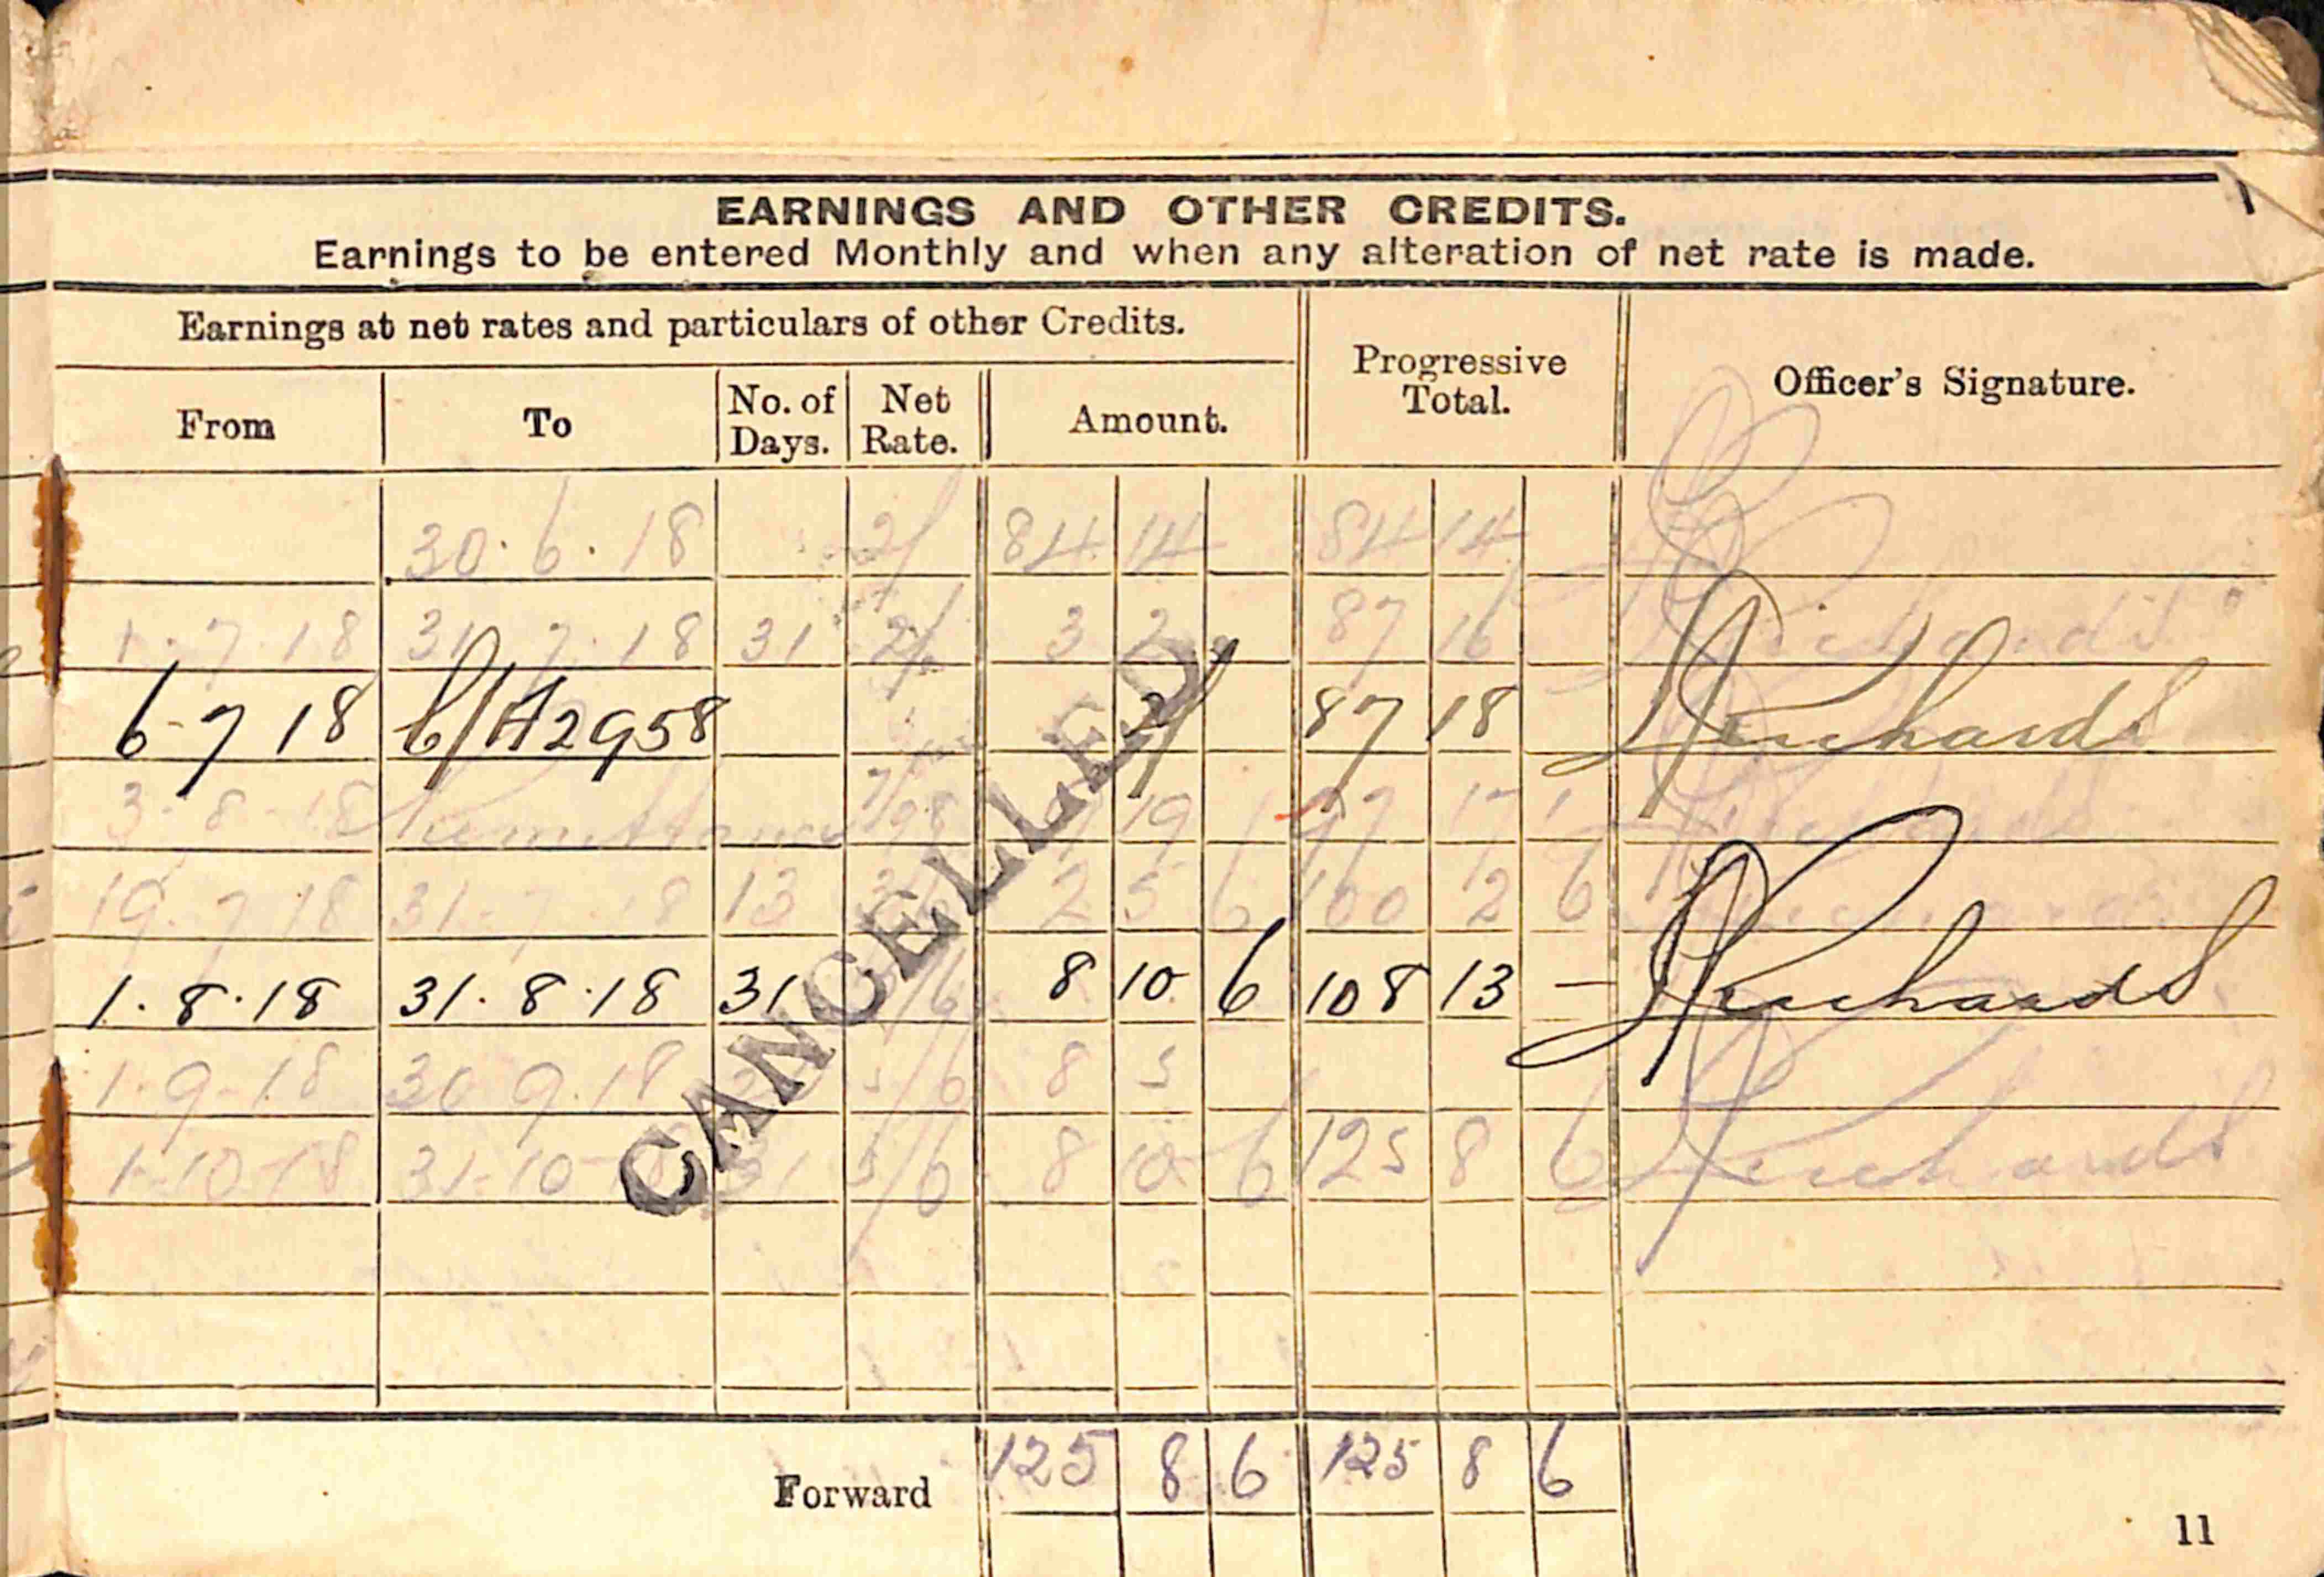 EARNINGS AND OTHER CREDITS.
Earnings to be entered Monthly and when any alteration of net rate is made.
Earnings at net rates and particulars of other Credits.
Progressive Total.
Officer's Signature.
From To No. of Days. Net Rate. Amount.
30.6.18 2/ 84 14 84 14
1.7.18 31.7.18 31 2/ 3 2 87 16 Richards
6-7 18 A2958 2/ 87 18 Richards
3-8-18 Remittance 19 97 17
19.7.18 31-7-18 13 2 5 6 100 2 6
1.8.18 31.8.18 31 5/6 8 10 6 108 13 – Richards
1.9-18 30 9.18 5/6 8 5
1-10-18 31-10-18 31 5/6 8 10 6 125 8 6 Richards
CANCELLED
Forward 125 8 6 125 8 6
11